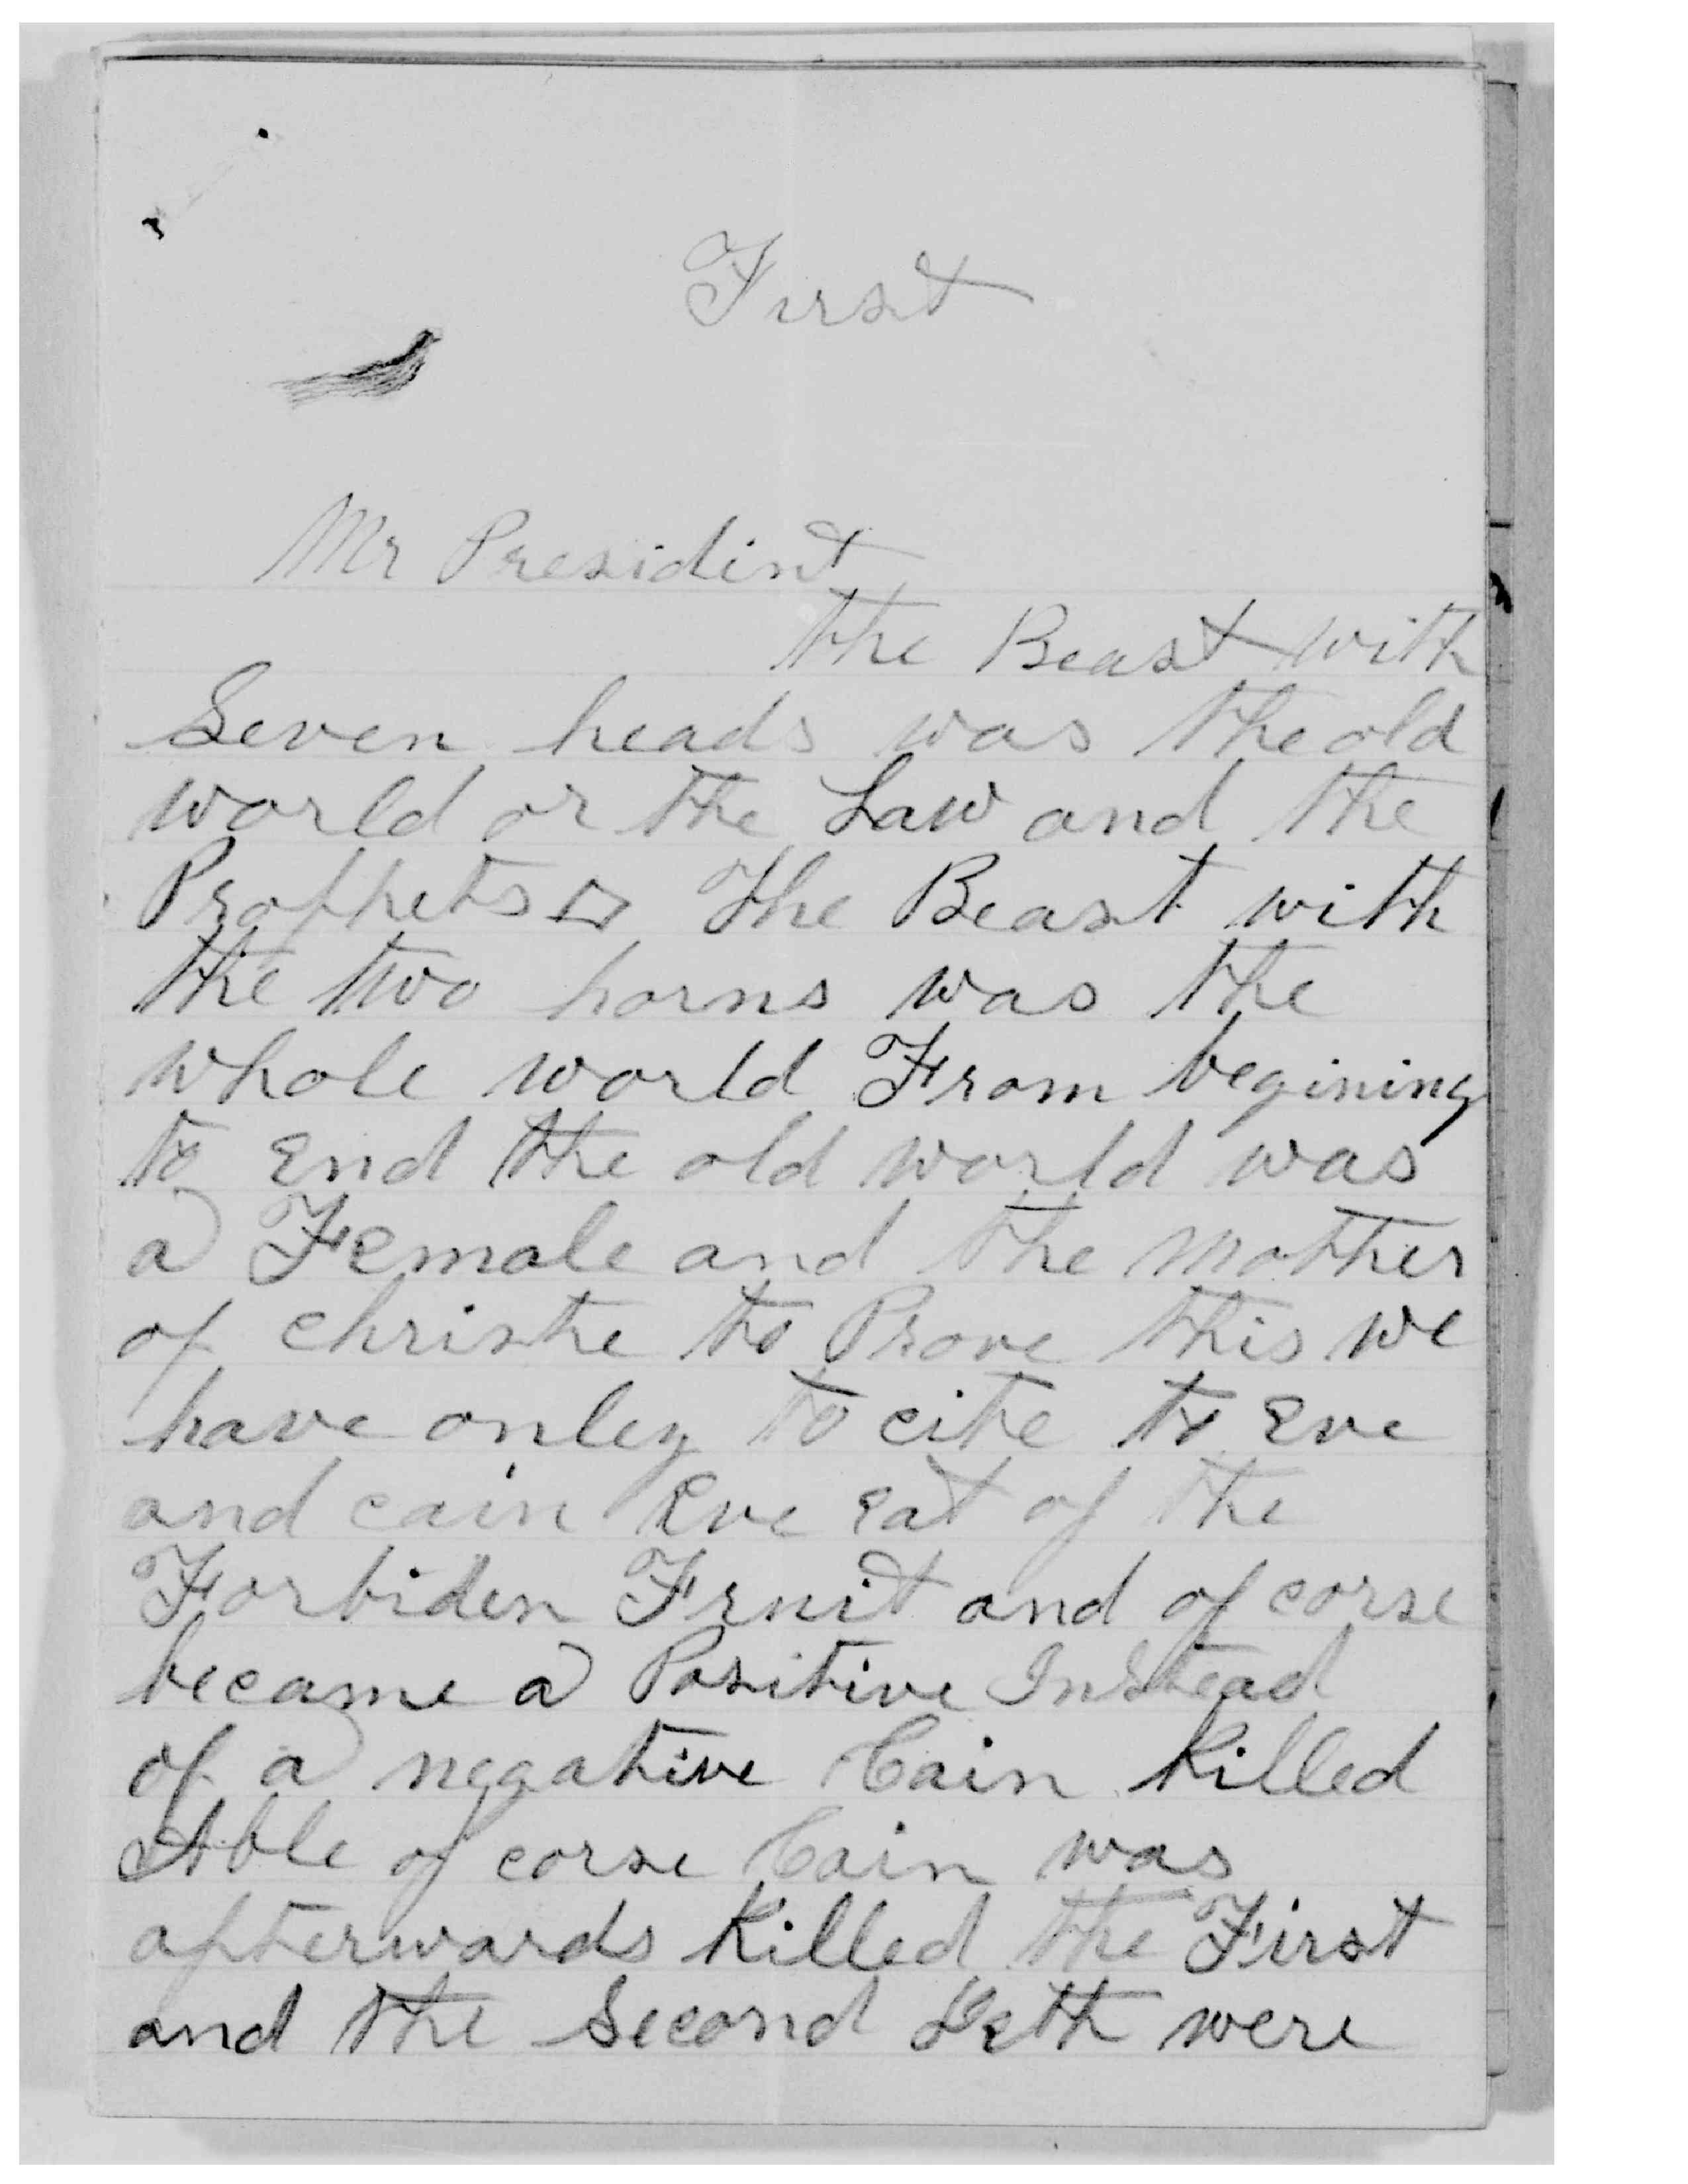 First
Mr Presidint
the Beast with
Seven heads was the old
world or the Law and the
Prophets The Beast with
the two horns was the
whole world From begining
to End the old world was
a Female and the mother
of christe to Prove this we
have onley to cite to Eve
and cain Eve Eat of the
Forbiden Fruit and of corse
became a Positive Instead
of a negative Cain killed
Able of corse Cain was
afterwards killed the First
and the Second were